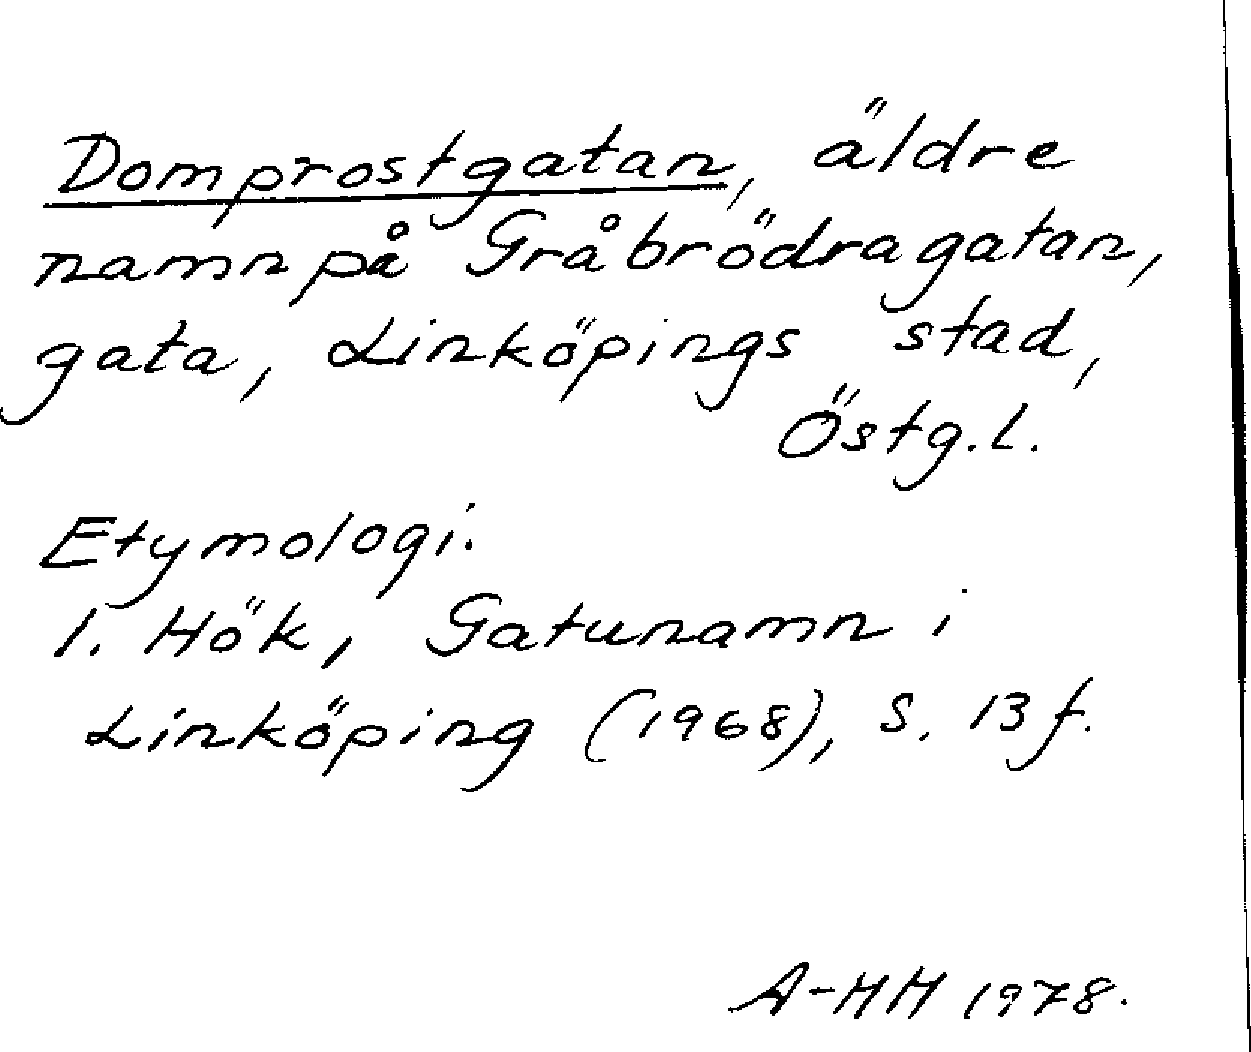 Domprostgatan, äldre
namn på Gråbrödragatan,
gata, Linköpings stad,
Östg.l.
Etymologi.
1. Hök, Gatunamn i
Linköping (1968), s. 13 f.
A-HH 1978.